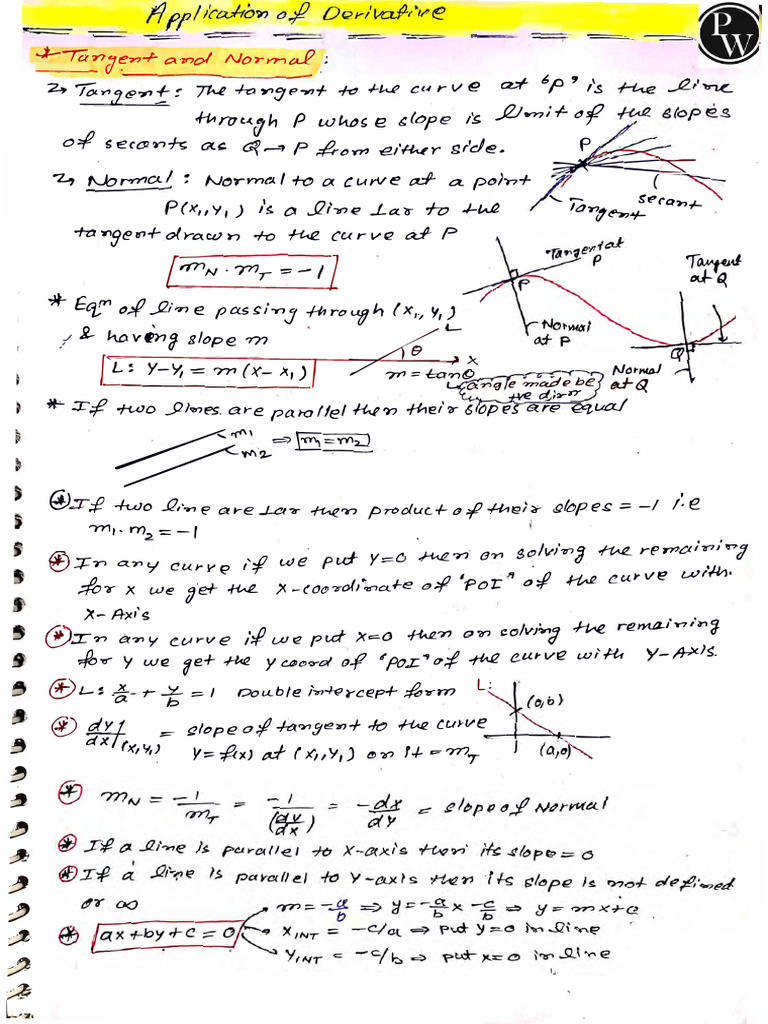 Application of Derivative
PW
* Tangent and Normal:
Tangent: The tangent to the curve at "P" is the line
through P whose slope is limit of the slopes
of secants as Q→P from either side.
P
secant
Tangent
Normal: Normal to a curve at a point
P(x₁,y₁) is a line ⊥ar to the
tangent drawn to the curve at P
mN·mT = -1
Tangent at P
P
Normal at P
Tangent at Q
Q
Normal at Q
* Eqⁿ of line passing through (x₁, y₁)
& having slope m
L
θ
x
L: y-y₁ = m(x-x₁)
m = tanθ
angle made be
+ve dirⁿ
* If two lines are parallel then their slopes are equal
m₁
m₂
⇒ m₁=m₂
* If two line are ⊥ar then product of their slopes = -1 i.e
m₁·m₂ = -1
* In any curve if we put y=0 then on solving the remaining
for x we get the x-coordinate of "POI" of the curve with
x-Axis
* In any curve if we put x=0 then on solving the remaining
for y we get the y coord of "POI" of the curve with y-Axis.
* L: x/a + y/b = 1 Double intercept form
L:
(0,b)
(a,0)
* dy/dx|(x₁,y₁) = slope of tangent to the curve
y=f(x) at (x₁,y₁) on it = mT
* mN = -1/mT = -1/(dy/dx) = -dx/dy = slope of Normal
* If a line is parallel to x-axis then its slope=0
* If a line is parallel to y-axis then its slope is not defined
or ∞
* ax+by+c=0
m=-a/b ⇒ y=-a/b x -c/b ⇒ y=mx+c
xINT = -c/a ⇒ put y=0 in line
yINT = -c/b ⇒ put x=0 in line